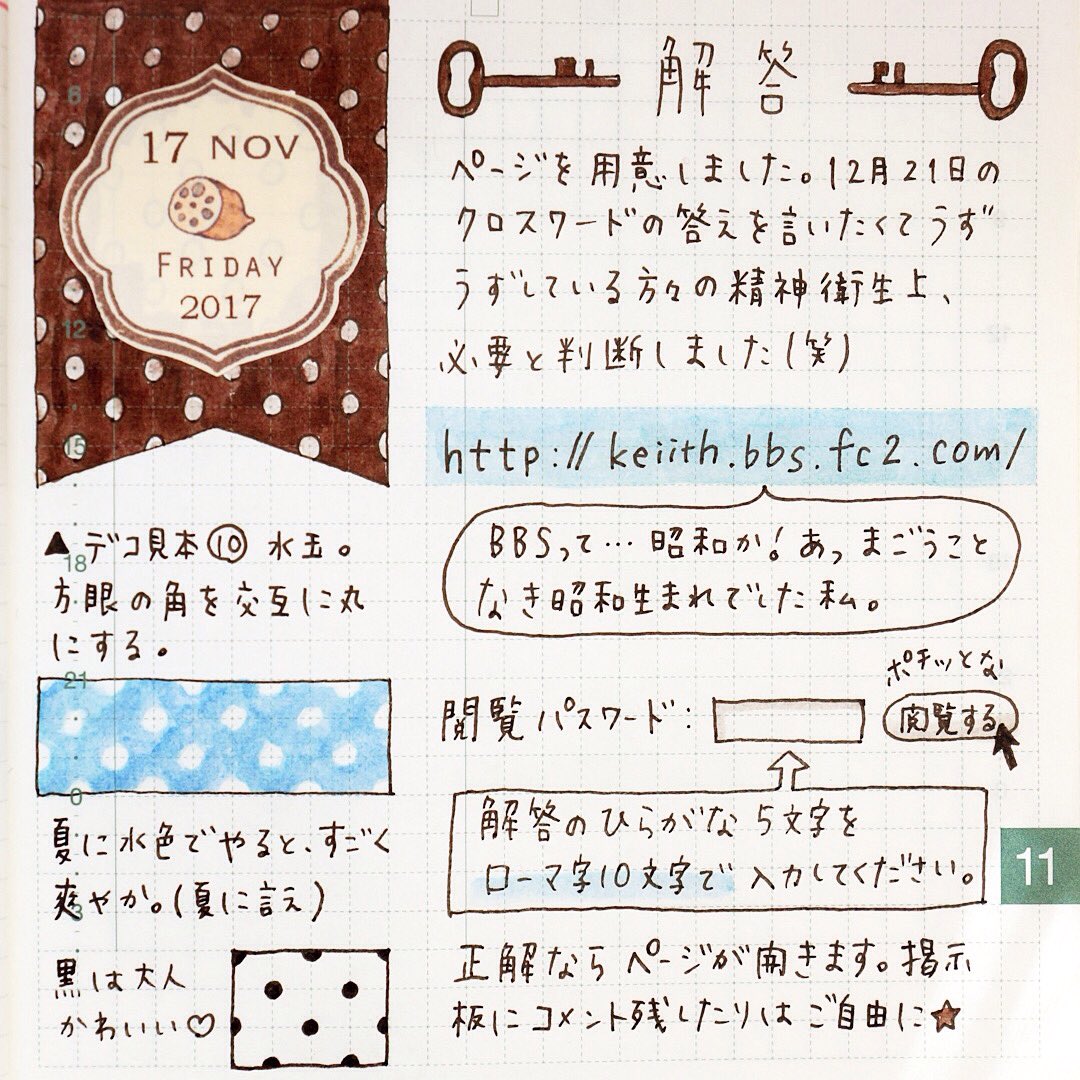 17 NOV
FRIDAY
2017
6
12
15
18
21
0
3
▲デコ見本⑩ 水玉。
方眼の角を交互に丸
にする。
夏に水色でやると、すごく
爽やか。(夏に言え)
黒は大人
かわいい♡
解答
ページを用意しました。12月21日の
クロスワードの答えを言いたくてうず
うずしている方々の精神衛生上、
必要と判断しました(笑)
http://keiith.bbs.fc2.com/
BBSって…昭和か!あっまごうこと
なき昭和生まれでした私。
ポチッとな
閲覧パスワード: 閲覧する
解答のひらがな5文字を
ローマ字10文字で入力してください。
11
正解ならページが開きます。掲示
板にコメント残したりはご自由に★